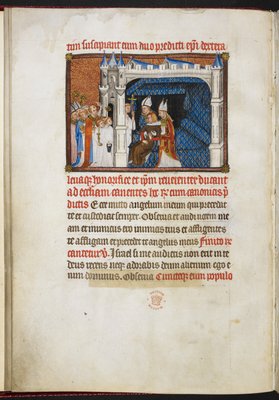 tim suscipiant eum duo predicti epi dextera
levaq honorifice et ipm reverenter ducant
ad ecclesiam canentes
dictis Ecce mitto angelum meum qui precedat
te et custodiat semper. Observa et audi vocem me
am et inimicus ero inimicis tuis et affligentes
te affligam et precedet te angelus meus finito
cantetur Israel si me audieris non erit in te
deus recens neq adorabis deum alienum ego e
nim dominus. Observa